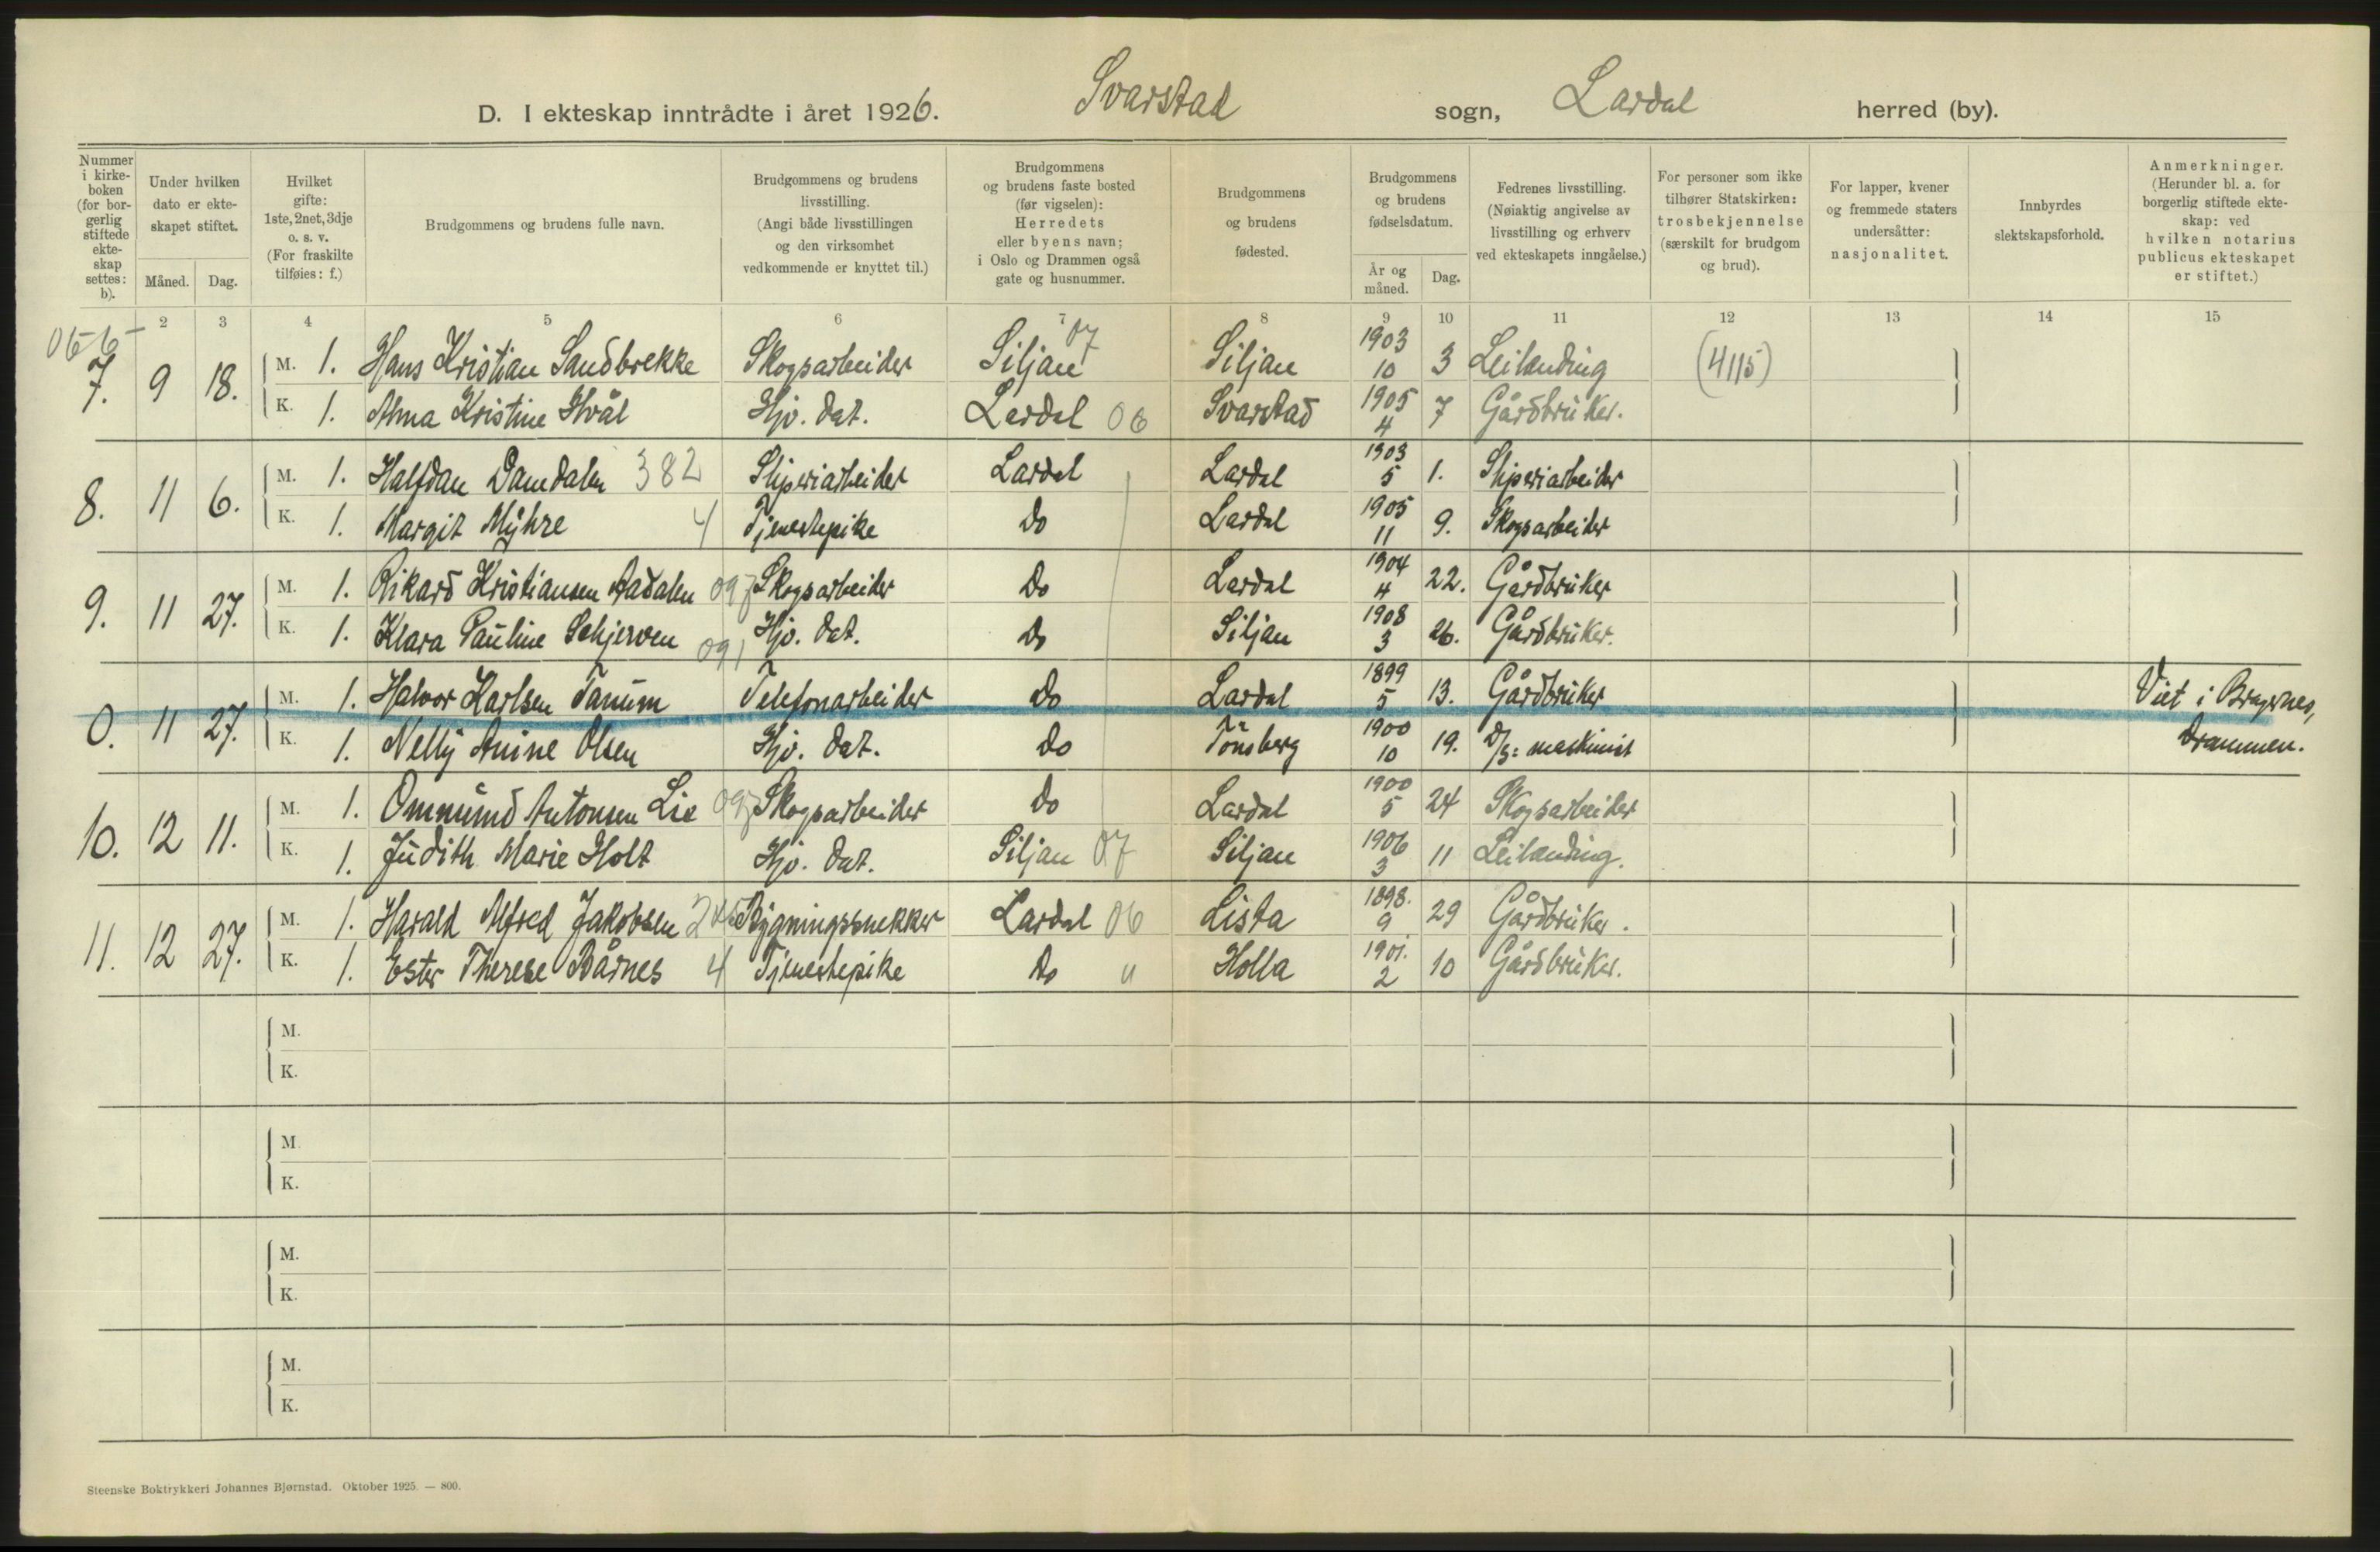 D. I ekteskap inntrådte i året 1926. Svarstad sogn, Lardal herred (by).
Nummer i kirke-boken (for bor-gerlig stiftede ekte-skap settes: b).
Under hvilken dato er ekte-skapet stiftet.
Måned. Dag.
Hvilket gifte: 1ste, 2net, 3dje o. s. v. (For fraskilte tilføies: f.)
Brudgommens og brudens fulle navn.
Brudgommens og brudens livsstilling. (Angi både livsstillingen og den virksomhet vedkommende er knyttet til.)
Brudgommens og brudens faste bosted (før vigselen): Herredets eller byens navn; i Oslo og Drammen også gate og husnummer.
Brudgommens og brudens fødested.
Brudgommens og brudens fødselsdatum.
År og måned. Dag.
Fedrenes livsstilling. (Nøiaktig angivelse av livsstilling og erhverv ved ekteskapets inngåelse.)
For personer som ikke tilhører Statskirken: trosbekjennelse (særskilt for brudgom og brud).
For lapper, kvener og fremmede staters undersåtter: nasjonalitet.
Innbyrdes slektskapsforhold.
Anmerkninger. (Herunder bl. a. for borgerlig stiftede ekte-skap: ved hvilken notarius publicus ekteskapet er stiftet.)
2 3 4 5 6 7 8 9 10 11 12 13 14 15
7. 9 18. M. 1. Hans Kristian Sandbrekke Skogsarbeider Siljan 07 Siljan 1903 10 3 Leilending (4115)
K. 1. Alma Kristine Hvål Hjv. dat. Lardal 06 Svarstad 1905 4 7 Gårdbruker.
8. 11 6. M. 1. Halfdan Damdalen 382 Sliperiarbeider Lardal Lardal 1903 5 1. Sliperiarbeider
K. 1. Margit Myhre 4 Tjenestepike Do Lardal 1905 11 9. Skogsarbeider
9. 11 27. M. 1. Rikard Kristiansen Aadalen 097 Skogsarbeider Do Lardal 1904 4 22. Gårdbruker
K. 1. Klara Pauline Schjerven 091 Hjv. dat. Do Siljan 1908 3 26. Gårdbruker.
0. 11 27. M. 1. Halvor Karlsen Tanum Telefonarbeider Do Lardal 1899 5 13. Gårdbruker Viet i Bragernes,
K. 1. Nelly Anine Olsen Hjv. dat. Do Tönsberg 1900 10 19. D/s: maskinist Drammen.
10. 12 11. M. 1. Ommund Antonsen Lie 097 Skogsarbeider Do Lardal 1900 5 24 Skogsarbeider
K. 1. Judith Marie Holt Hjv. dat. Siljan 07 Siljan 1906 3 11 Leilending.
11. 12 27. M. 1. Harald Alfred Jakobsen Bygningssnekker Lardal 06 Lista 1898. 9 29 Gårdbruker.
K. 1. Ester Therese Bårnes 4 Tjenestepike Do " Holla 1901. 2 10 Gårdbruker.
M.
K.
M.
K.
M.
K.
M.
K.
Steenske Boktrykkeri Johannes Bjørnstad. Oktober 1925. — 800.